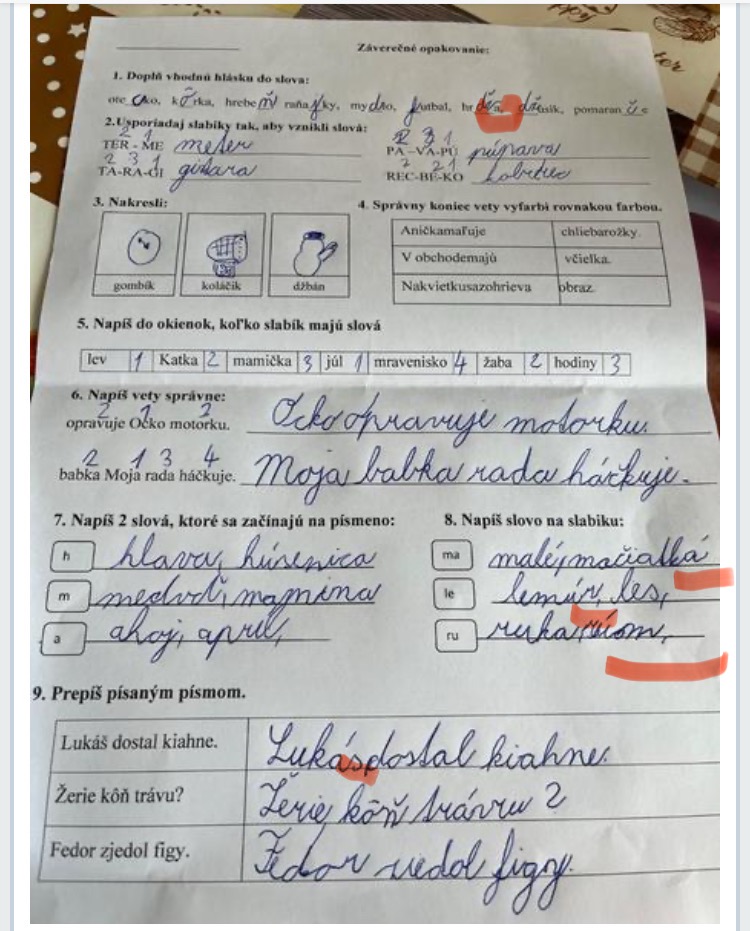 Záverečné opakovanie:
1. Doplň vhodnú hlásku do slova:
kôrka, hrebeň raňajky, mydlo, futbal, džúsik, pomaran če
2.Usporiadaj slabiky tak, aby vznikli slová:
2 1
TER - ME meter
2 3 1
PA -VA-PÚ púpava
2 3 1
TA-RA-GI gitara
REC-BE-KO
3. Nakresli:
gombík koláčik džbán
4. Správny koniec vety vyfarbi rovnakou farbou.
Aničkamaľuje chliebarožky.
V obchodemajú včielka.
Nakvietkusazohrieva obraz.
5. Napíš do okienok, koľko slabík majú slová
lev 1 Katka 2 mamička 3 júl 1 mravenisko 4 žaba 2 hodiny 3
6. Napíš vety správne:
opravuje Ocko motorku. Ocko opravuje motorku.
2 1 3 4
babka Moja rada háčkuje. Moja babka rada háčkuje.
7. Napíš 2 slová, ktoré sa začínajú na písmeno:
h hlava, húsenica
m
a ahoj, apríl,
8. Napíš slovo na slabiku:
ma malé,
le lemúr, les,
ru ruka,
9. Prepíš písaným písmom.
Lukáš dostal kiahne. Lukás dostal kiahne.
Žerie kôň trávu? Žerie kôň trávu?
Fedor zjedol figy. Fedor figy.